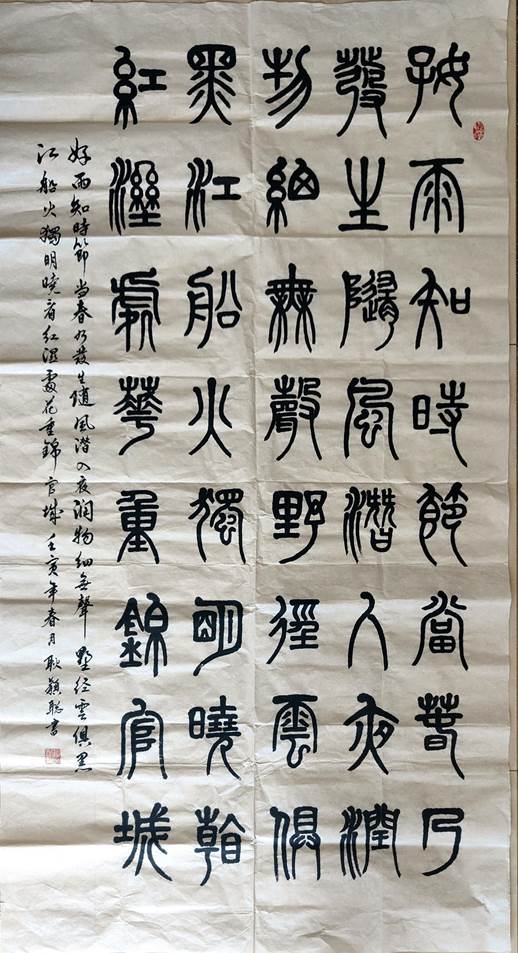 好雨知時節當春乃
發生隨風潛入夜潤
物細無聲野徑雲俱
黑江船火獨明曉看
紅溼處華重錦官城
好雨知時節当春乃發生隨風潜入夜润物细無聲野径雲俱黑
江船火獨明曉看紅湿處花重錦官城壬寅年春月耿颖聪書